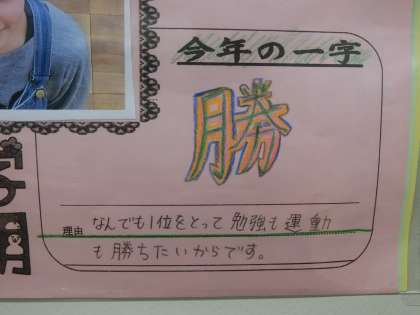 今年の一字
勝
理由 なんでも1位をとって勉強も運動
も勝ちたいからです。